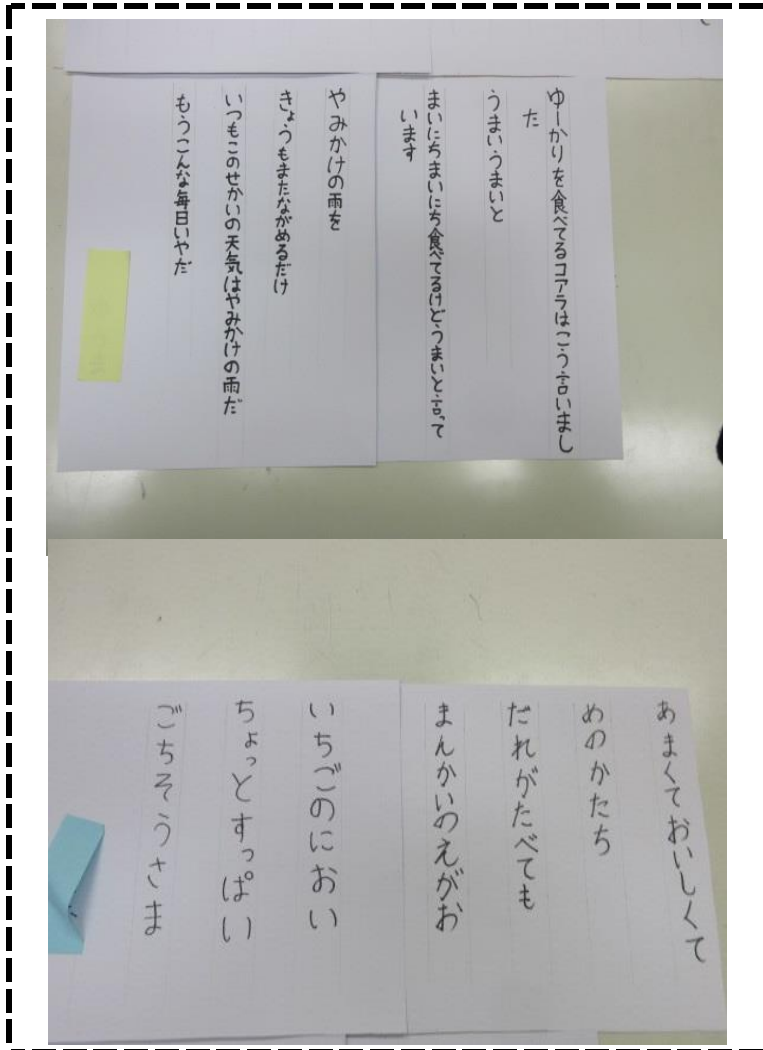 ゆーかりを食べてるコアラはこう言いまし
た
うまいうまいと
まいにちまいにち食べてるけどうまいと言って
います
やみかけの雨を
きょうもまたながめるだけ
いつもこのせかいの天気はやみかけの雨だ
もうこんな毎日いやだ
あまくておいしくて
めのかたち
だれがたべても
まんかいのえがお
いちごのにおい
ちょっとすっぱい
ごちそうさま